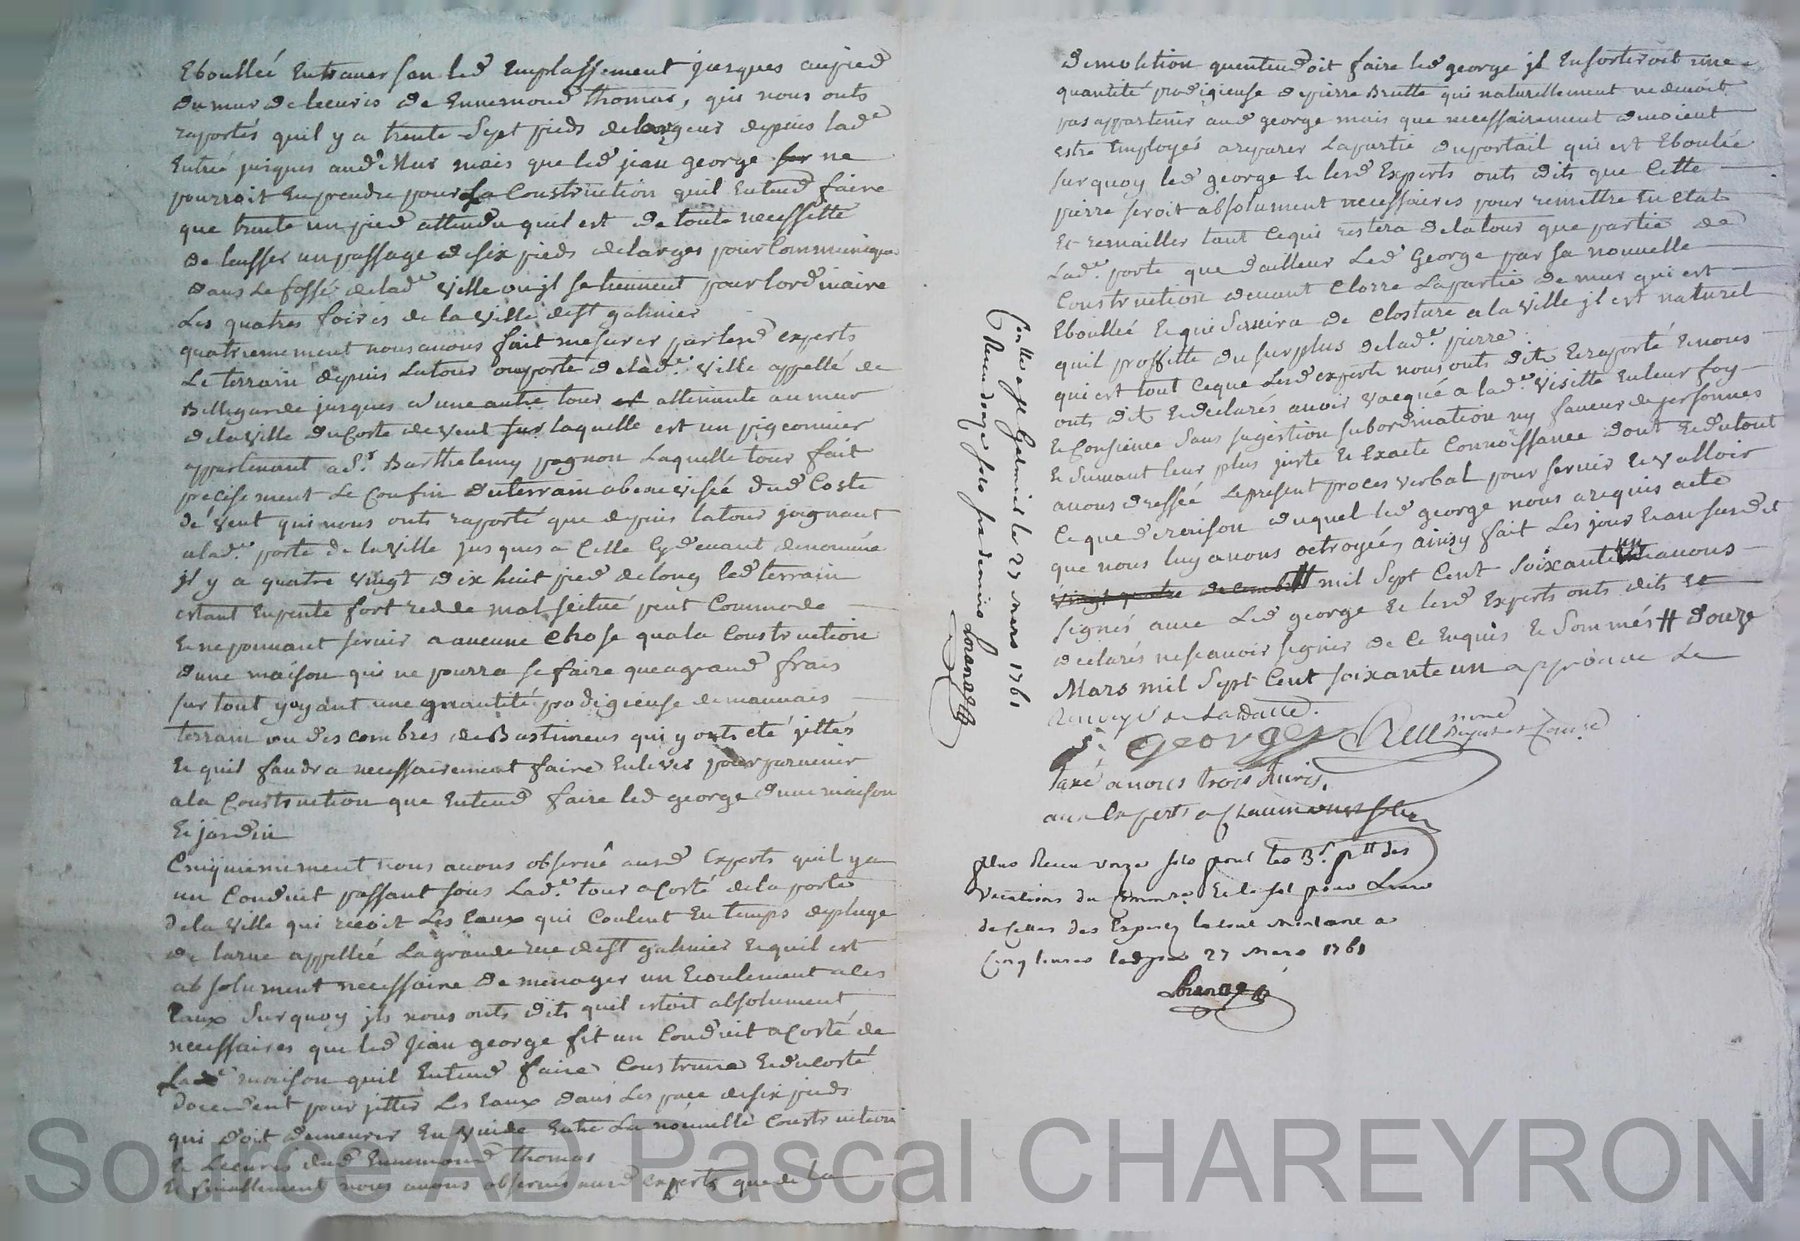 Eboullée Entraversan led Emplassement jusques aupied
du mur de lecuris de Ennemond thomas, qui nous onts
raportés quil y a trente Sept pieds delargeur depuis lade
Entrée jusques aud. Mur mais que led jean george ne
pourroit En prendre pour la Construction quil Entend faire
que trente un pied attendu quil est de toute necessitté
de laisser un passage desix pieds delarges pour Communiquer
dans Le fossé delade ville ou jl se tiennent pour lordinaire
Les quatres foires de la ville dest galmier
quatriemement nous avons fait mesurer par lesd experts
Le terrain depuis La tour ou porte delade ville appellé de
Bellegarde jusques a une autre tour attenante au mur
dela ville du Costé de vent laquelle est un pigeonnier
appartenant a Sr Barthelemy pagnon Laquelle tour fait
précisement Le Confin du terrain dud Coste
de vent qui nous onts raporté que depuis latour joignant
alade porte de la ville jusques a Celle Cy devant denommée
jl y a quatre vingt dix huit pied delong led terrain
estant En pente fort redde mal scitué peut Commode
Et ne pouvant servir a aucune chose qua la Construction
dune maison qui ne pourra se faire que agrand frais
sur tout y ayant une quantité prodigieuse de mauvais
terrain ou descombres de Bastimens qui y onts eté jettés
Et quil faudra necessairement faire Enlever pour parvenir
ala Construction que Entend faire led george dune maison
Et jardin
Cinquiemement nous avons observé ausd Experts quil y a
un Conduit passant sous Lade tour a Costé de la porte
de la ville qui recoit Les Eaux qui Coulent En temps de pluye
de larue appellée La grande rue dest galmier Et quil est
absolument necessaire de menager un Ecoulement a Ces
Eaux Sur quoy jls nous onts dits quil estoit absolument
necessaires que led Jean george fit un Conduit a Costé de
Lade maison quil Entend faire Construire Et du Costé
doccident pour jetter Les Eaux dans Les pace de six pieds
qui doit demeurer En vuide Entre La nouvelle Construction
Et Lecuris dud Ennemond thomas
Et finallement nous avons observés ausd experts que de la
demolition quentendoit faire led george jl En sortiroit une
quantité prodigieuse de pierre Brutte qui naturellement ne devoit
pas appartenir aud george mais que necessairement devoient
estre Employés a reparer La partie du portail qui est Eboulée
sur quoy led george Et lesd Experts onts dits que Cette
pierre seroit absolument necessaires pour remettre En Etat
Et remailler tant Ce qui restera de la tour que partie de
Lade porte que dailleur Led George par sa nouvelle
Construction devant Clorre La partie de mur qui est
Eboullée Et qui Servira de Closture a la ville jl est naturel
quil proffitte du surplus delade pierre
qui est tout Ceque Lesd experts nous onts dits Et raporté Et nous
onts dit Et declarés avoir vacqué a lade visitte En leur foy
Et Consience Sans sugestion subordination ny faveur de personnes
Et Suivant leur plus juste Et Exacte Connoissance dont Et du tout
avons dressée Le present proces verbal pour servir Et valloir
Ce que de raison duquel led george nous a requis acte
que nous luy avons octroyée, ainsy fait Les jour Et an susdit
vingt quatre # mil Sept Cent Soixante un avons
signés avec Led george Et lesd Experts onts dits Et
declarés ne scavoir signer de Ce Enquis Et Sommés # douze
Mars mil Sept Cent soixante un approuve Le
Renvoye de La datte.
george
taxé a nous trois livres,
aux Experts a Chacun
plus Receu onze sols pour les 3s. des
vacations du Et le sol pour Livre
de Celles des Experts le tout Montant a
Cinq livres led jour 27 Mars 1761
Conllé a st Galmier le 27 Mars 1761
Receu douze sols six deniers
Source AD Pascal CHAREYRON